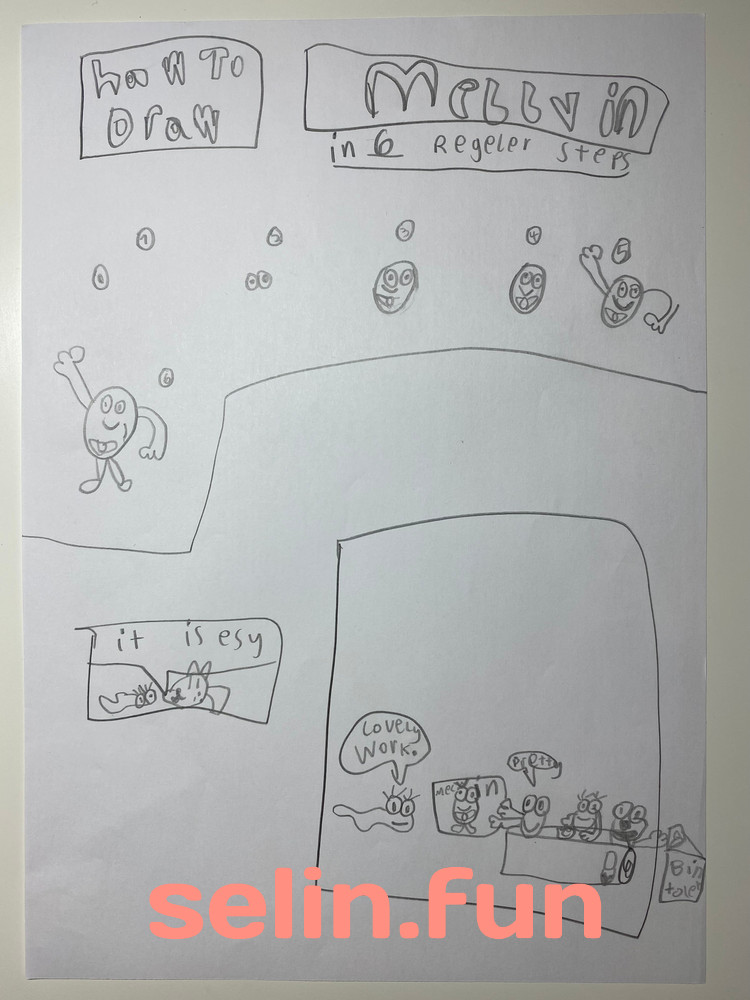 How To
Draw
Mellvin
in 6 Regeler steps
1
2
3
4
5
6
it is esy
Lovely
Work.
Pretty
Mellvin
Bin
selin.fun